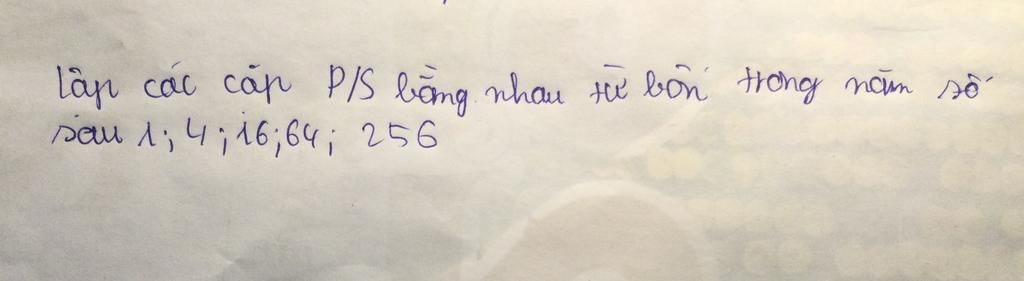 lập các cặp P/S bằng nhau từ bốn trong năm số
sau 1; 4; 16; 64; 256